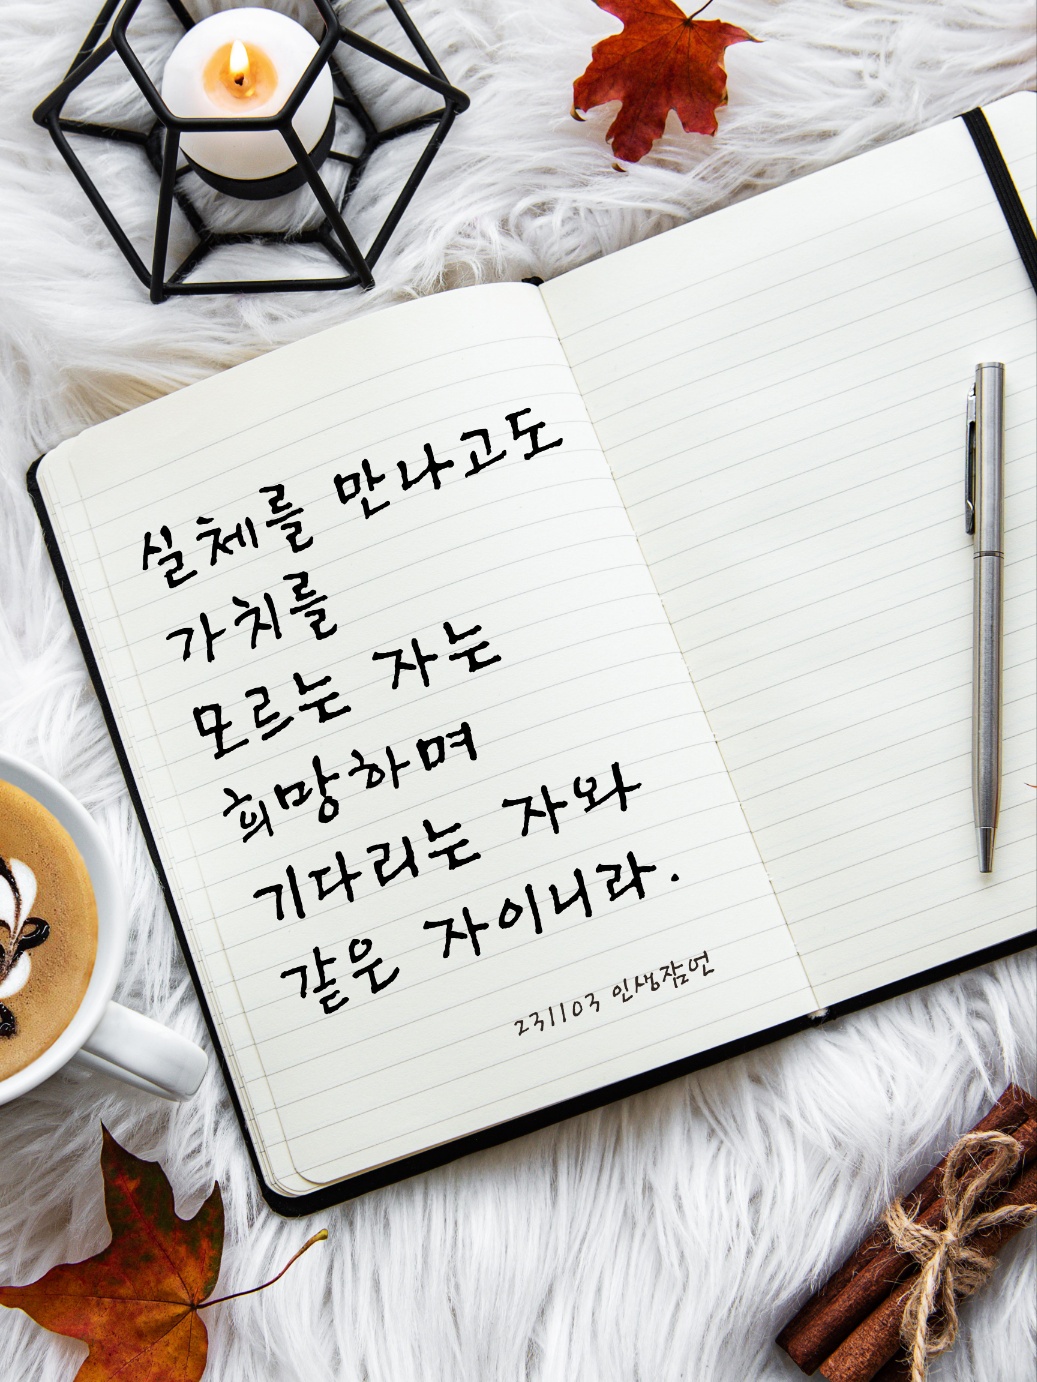 실체를 만나고도
가치를
모르는 자는
희망하며
기다리는 자와
같은 자이니라.
231103 인생잠언